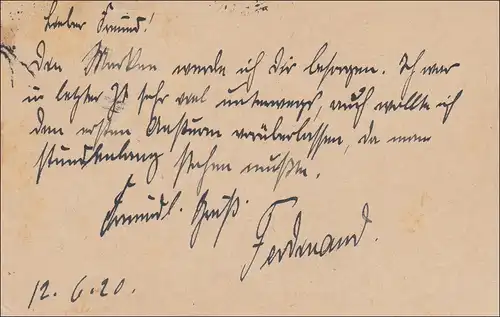 Lieber Freund!
Den Marken werde ich Dir besorgen. Ich war
in letzter Zt sehr viel unterwegs, auch wollte ich
den ersten Ansturm vorüberlassen, da man
stundenlang stehen mußte.
Freundl. Gruß.
Ferdinand.
12.6.20.